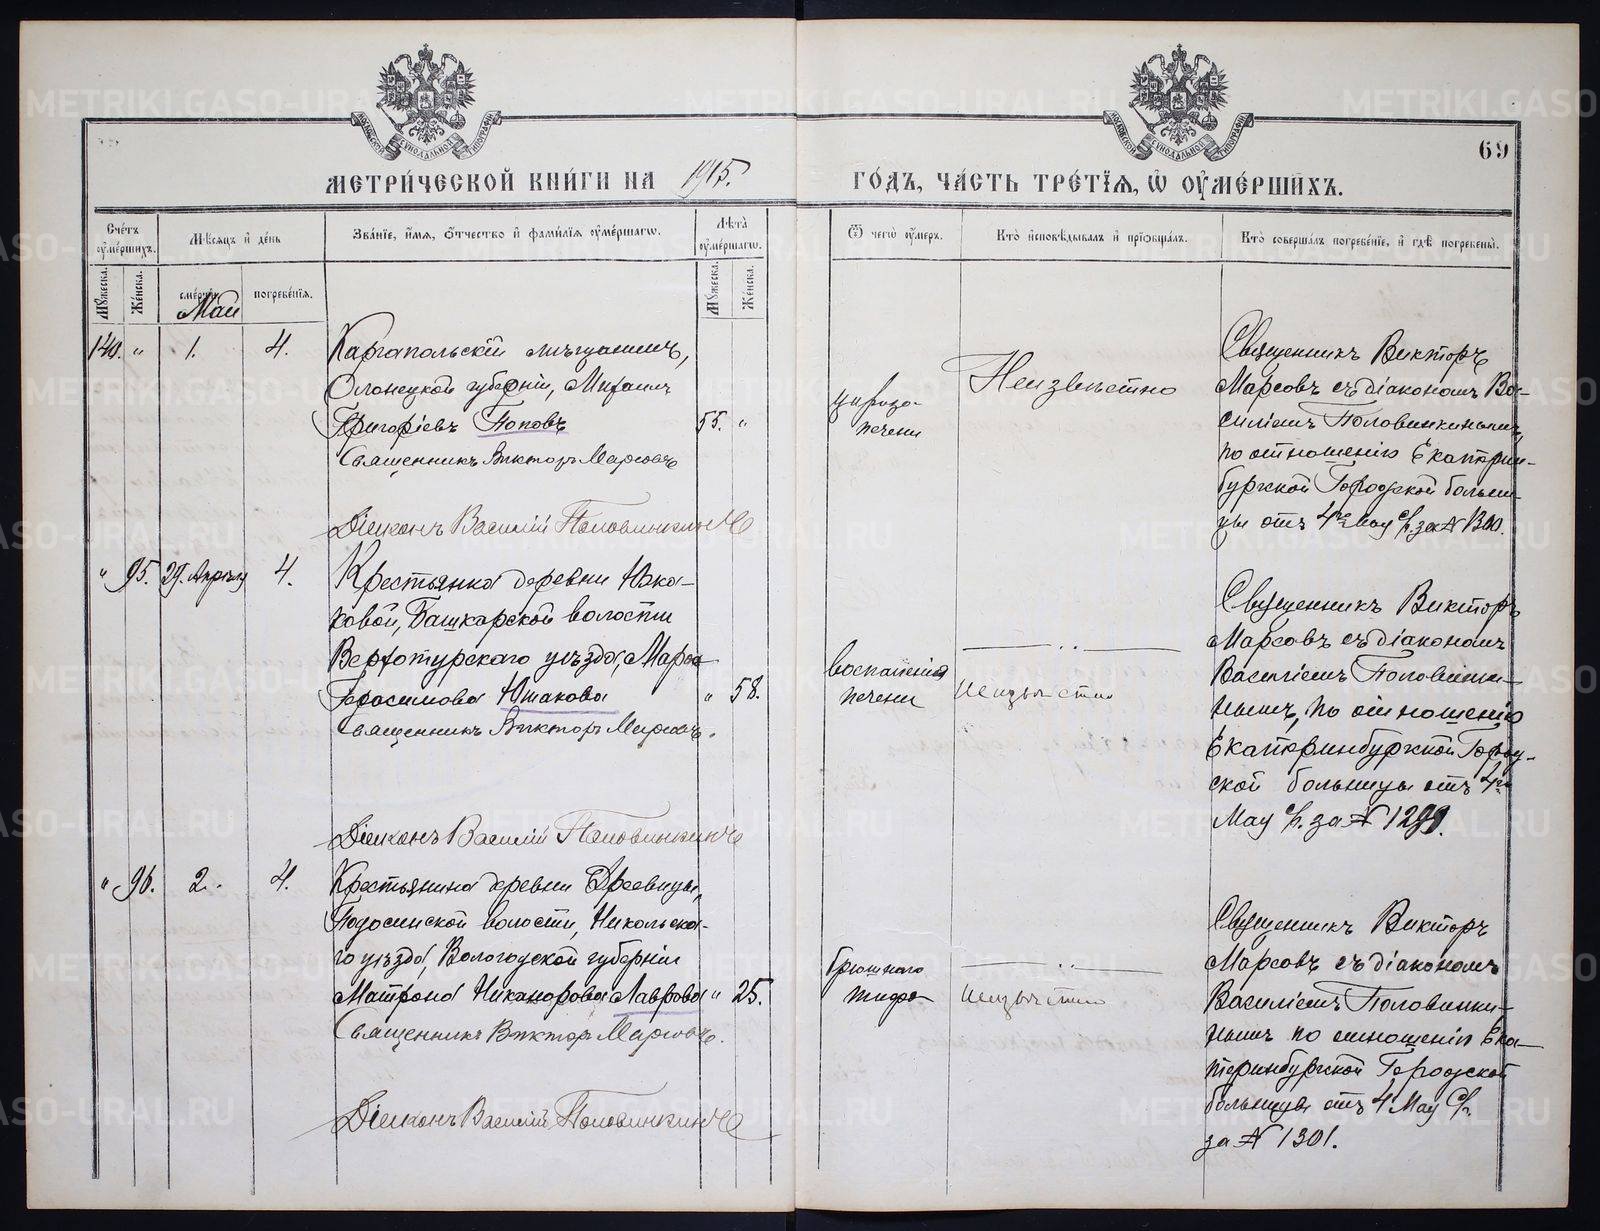 69
МЕТРИ́ЧЕСКОЙ КНИ́ГИ НА 1915. ГО́ДЪ, ЧА́СТЬ ТРЕ́ТІѦ, Ѡ҆ ОУ҆МЕ́РШИХЪ.
Сче́тъ оу҆ме́ршихъ.
Мѣ́сяцъ и҆ де́нь
Зва́нїе, и҆́мя, о҆́тчество и҆ фами́лїя оу҆ме́ршагѡ.
Лѣ́та оу҆ме́ршагѡ.
Ѿ чегѡ̀ оу҆́меръ.
Кто̀ и҆сповѣ́дывалъ и҆ прїѡбща́лъ.
Кто̀ соверша́лъ погребе́нїе, и҆ гдѣ̀ погребены̀.
Мꙋ́жеска.
Же́нска.
сме́рти.
погребе́нїя.
Мꙋ́жеска.
Же́нска.
Май
140. " 1. 4.
Каргапольскій мѣщанинъ,
Олонецкой губерніи, Михаилъ
Григоріевъ Поповъ
55. "
Священникъ Викторъ Марсовъ
Діаконъ Василій Половинкинъ
цироза
печени
Неизвѣстно
Священникъ Викторъ
Марсовъ съ діакономъ Ва-
силіемъ Половинкинымъ,
по отношенію Екатерин-
бургской Городской больни-
цы отъ 4го Мая с/г. за №
" 95. 29. Апрѣля 4.
Крестьянка деревни
Башкарской волости
Верхотурскаго уѣзда, Марѳа
Герасимова Юшакова
" 58.
Священникъ Викторъ Марсовъ.
Діаконъ Василій Половинкинъ
воспаленія
печени
— " —
Неизвѣстно
Священникъ Викторъ
Марсовъ съ діакономъ
Василіемъ Половинки-
нымъ, по отношенію
Екатеринбургской Город-
ской больницы отъ 4го
Мая с/г. за №
" 96. 2. 4.
Крестьянина деревни
Подосинской волости, Никольска-
го уѣзда, Вологодской губерніи
Матрона Никанорова Лаврова
" 25.
Священникъ Викторъ Марсовъ.
Діаконъ Василій Половинкинъ
брюшного
тифа
— " —
Неизвѣстно
Священникъ Викторъ
Марсовъ съ діакономъ
Василіемъ Половинки-
нымъ по отношенію Ека-
теринбургской Городской
больницы отъ 4 Мая с/г.
за № 1301.
METRIKI.GASO-URAL.RU